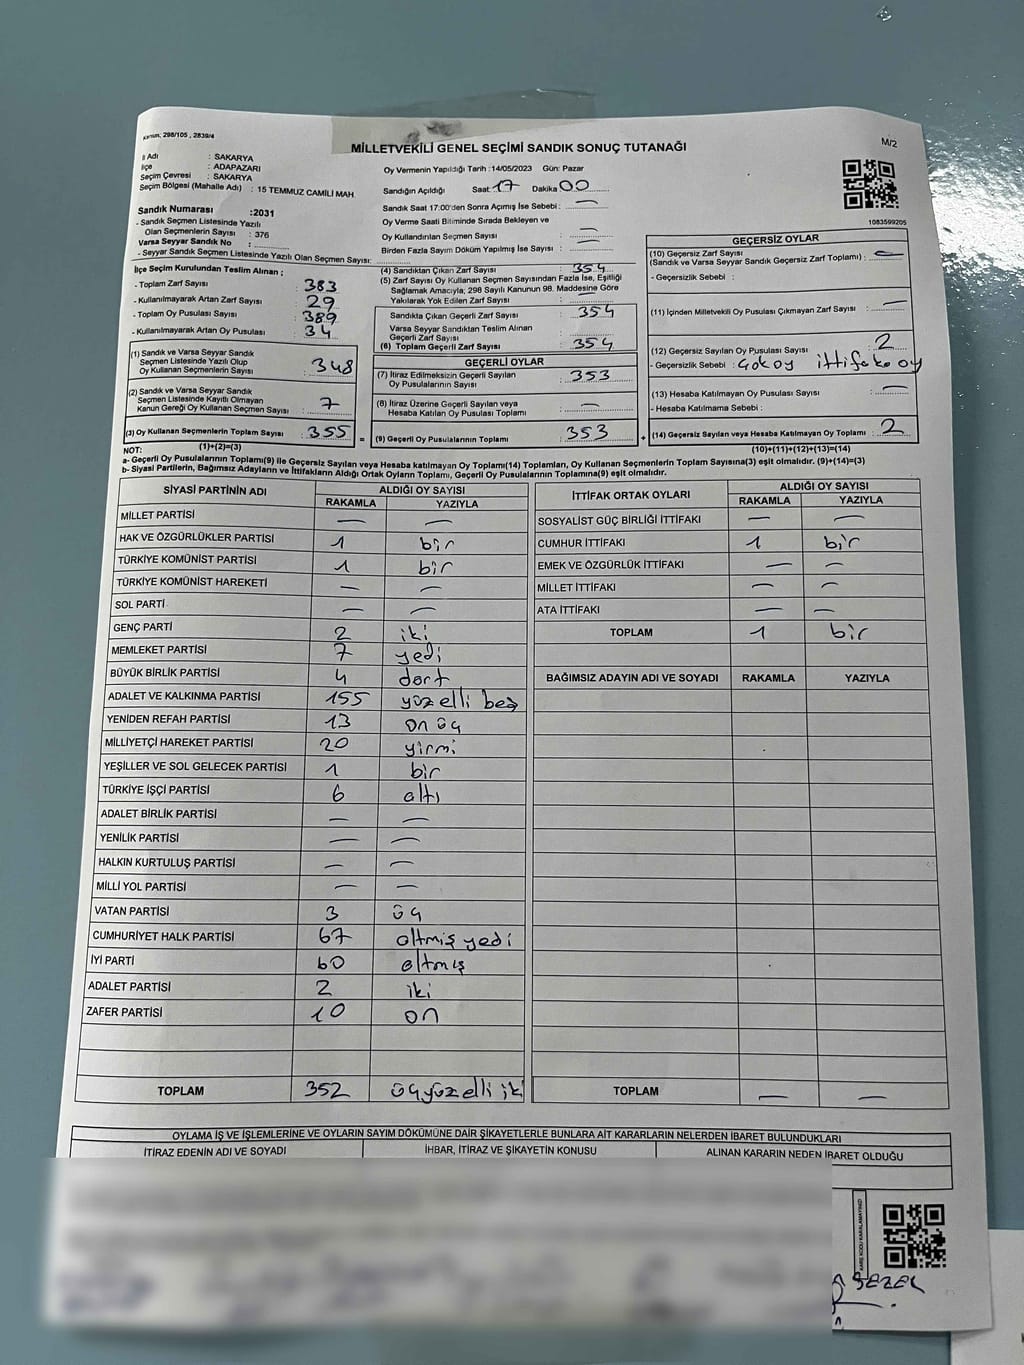 Kanun; 298/105 , 2839/4
MİLLETVEKİLİ GENEL SEÇİMİ SANDIK SONUÇ TUTANAĞI
M/2
İl Adı : SAKARYA
İlçe : ADAPAZARI
Seçim Çevresi : SAKARYA
Seçim Bölgesi (Mahalle Adı) : 15 TEMMUZ CAMİLİ MAH.
Sandık Numarası :2031
- Sandık Seçmen Listesinde Yazılı
Olan Seçmenlerin Sayısı : 376
Varsa Seyyar Sandık No :
- Seyyar Sandık Seçmen Listesinde Yazılı Olan Seçmen Sayısı:
Oy Vermenin Yapıldığı Tarih :14/05/2023 Gün: Pazar
Sandığın Açıldığı Saat: 17 Dakika 00
Sandık Saat 17:00'den Sonra Açımış İse Sebebi : —
Oy Verme Saati Bitiminde Sırada Bekleyen ve
Oy Kullandırılan Seçmen Sayısı : —
Birden Fazla Sayım Döküm Yapılmış İse Sayısı : —
1083599205
İlçe Seçim Kurulundan Teslim Alınan ;
- Toplam Zarf Sayısı : 383
- Kullanılmayarak Artan Zarf Sayısı : 29
- Toplam Oy Pusulası Sayısı : 389
- Kullanılmayarak Artan Oy Pusulası : 34
(1) Sandık ve Varsa Seyyar Sandık
Seçmen Listesinde Yazılı Olup
Oy Kullanan Seçmenlerin Sayısı : 348
(2) Sandık ve Varsa Seyyar Sandık
Seçmen Listesinde Kayıtlı Olmayan
Kanun Gereği Oy Kullanan Seçmen Sayısı : 7
(3) Oy Kullanan Seçmenlerin Toplam Sayısı : 355 =
(1)+(2)=(3)
(4) Sandıktan Çıkan Zarf Sayısı : 354
(5) Zarf Sayısı Oy Kullanan Seçmen Sayısından Fazla İse, Eşitliği
Sağlamak Amacıyla; 298 Sayılı Kanunun 98. Maddesine Göre
Yakılarak Yok Edilen Zarf Sayısı :
Sandıkta Çıkan Geçerli Zarf Sayısı : 354
Varsa Seyyar Sandıktan Teslim Alınan
Geçerli Zarf Sayısı :
(6) Toplam Geçerli Zarf Sayısı : 354
GEÇERLİ OYLAR
(7) İtiraz Edilmeksizin Geçerli Sayılan
Oy Pusulalarının Sayısı : 353
(8) İtiraz Üzerine Geçerli Sayılan veya
Hesaba Katılan Oy Pusulası Toplamı : —
(9) Geçerli Oy Pusulalarının Toplamı : 353 +
GEÇERSİZ OYLAR
(10) Geçersiz Zarf Sayısı
(Sandık ve Varsa Seyyar Sandık Geçersiz Zarf Toplamı) : —
- Geçersizlik Sebebi :
(11) İçinden Milletvekili Oy Pusulası Çıkmayan Zarf Sayısı : —
(12) Geçersiz Sayılan Oy Pusulası Sayısı : 2
- Geçersizlik Sebebi : Çok oy ittifaka oy
(13) Hesaba Katılmayan Oy Pusulası Sayısı : —
- Hesaba Katılmama Sebebi :
(14) Geçersiz Sayılan veya Hesaba Katılmayan Oy Toplamı : 2
(10)+(11)+(12)+(13)=(14)
NOT:
a- Geçerli Oy Pusulasının Toplamı(9) ile Geçersiz Sayılan veya Hesaba katılmayan Oy Toplamı(14) Toplamları, Oy Kullanan Seçmenlerin Toplam Sayısına(3) eşit olmalıdır. (9)+(14)=(3)
b- Siyasi Partilerin, Bağımsız Adayların ve İttifakların Aldığı Ortak Oyların Toplamı, Geçerli Oy Pusulalarının Toplamına(9) eşit olmalıdır.
SİYASİ PARTİNİN ADI ALDIĞI OY SAYISI
RAKAMLA YAZIYLA
MİLLET PARTİSİ — —
HAK VE ÖZGÜRLÜKLER PARTİSİ 1 bir
TÜRKİYE KOMÜNİST PARTİSİ 1 bir
TÜRKİYE KOMÜNİST HAREKETİ — —
SOL PARTİ — —
GENÇ PARTİ 2 iki
MEMLEKET PARTİSİ 7 yedi
BÜYÜK BİRLİK PARTİSİ 4 dört
ADALET VE KALKINMA PARTİSİ 155 yüzelli beş
YENİDEN REFAH PARTİSİ 13 on üç
MİLLİYETÇİ HAREKET PARTİSİ 20 yirmi
YEŞİLLER VE SOL GELECEK PARTİSİ 1 bir
TÜRKİYE İŞÇİ PARTİSİ 6 altı
ADALET BİRLİK PARTİSİ — —
YENİLİK PARTİSİ — —
HALKIN KURTULUŞ PARTİSİ — —
MİLLİ YOL PARTİSİ — —
VATAN PARTİSİ 3 üç
CUMHURİYET HALK PARTİSİ 67 altmış yedi
İYİ PARTİ 60 altmış
ADALET PARTİSİ 2 iki
ZAFER PARTİSİ 10 on
TOPLAM 352 üçyüzelli iki
İTTİFAK ORTAK OYLARI ALDIĞI OY SAYISI
RAKAMLA YAZIYLA
SOSYALİST GÜÇ BİRLİĞİ İTTİFAKI — —
CUMHUR İTTİFAKI 1 bir
EMEK VE ÖZGÜRLÜK İTTİFAKI — —
MİLLET İTTİFAKI — —
ATA İTTİFAKI — —
TOPLAM 1 bir
BAĞIMSIZ ADAYIN ADI VE SOYADI RAKAMLA YAZIYLA
TOPLAM — —
OYLAMA İŞ VE İŞLEMLERİNE VE OYLARIN SAYIM DÖKÜMÜNE DAİR ŞİKAYETLERLE BUNLARA AİT KARARLARIN NELERDEN İBARET BULUNDUKLARI
İTİRAZ EDENİN ADI VE SOYADI İHBAR, İTİRAZ VE ŞİKAYETİN KONUSU ALINAN KARARIN NEDEN İBARET OLDUĞU
KARE KODU KARALAMAYINIZ!
SEZER